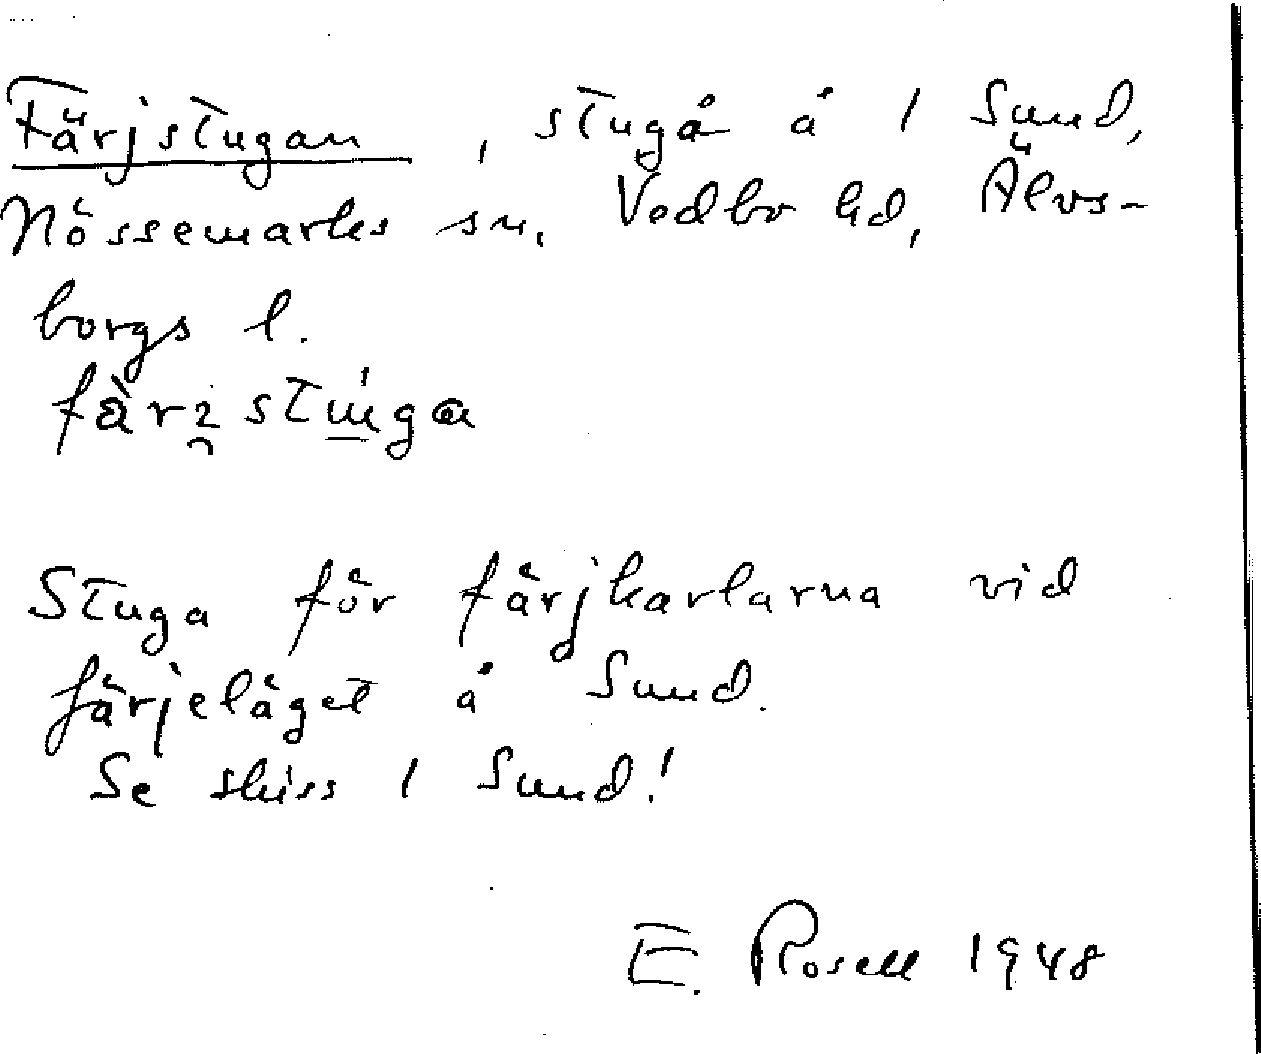 Färjstugan, stuga å 1 Sund,
Nössemarks sn, Vedbo hd, Älvs-
borgs l.
Stuga för färjkarlarna vid
färjeläget å Sund.
Se skiss 1 Sund!
E. Rosell 1948